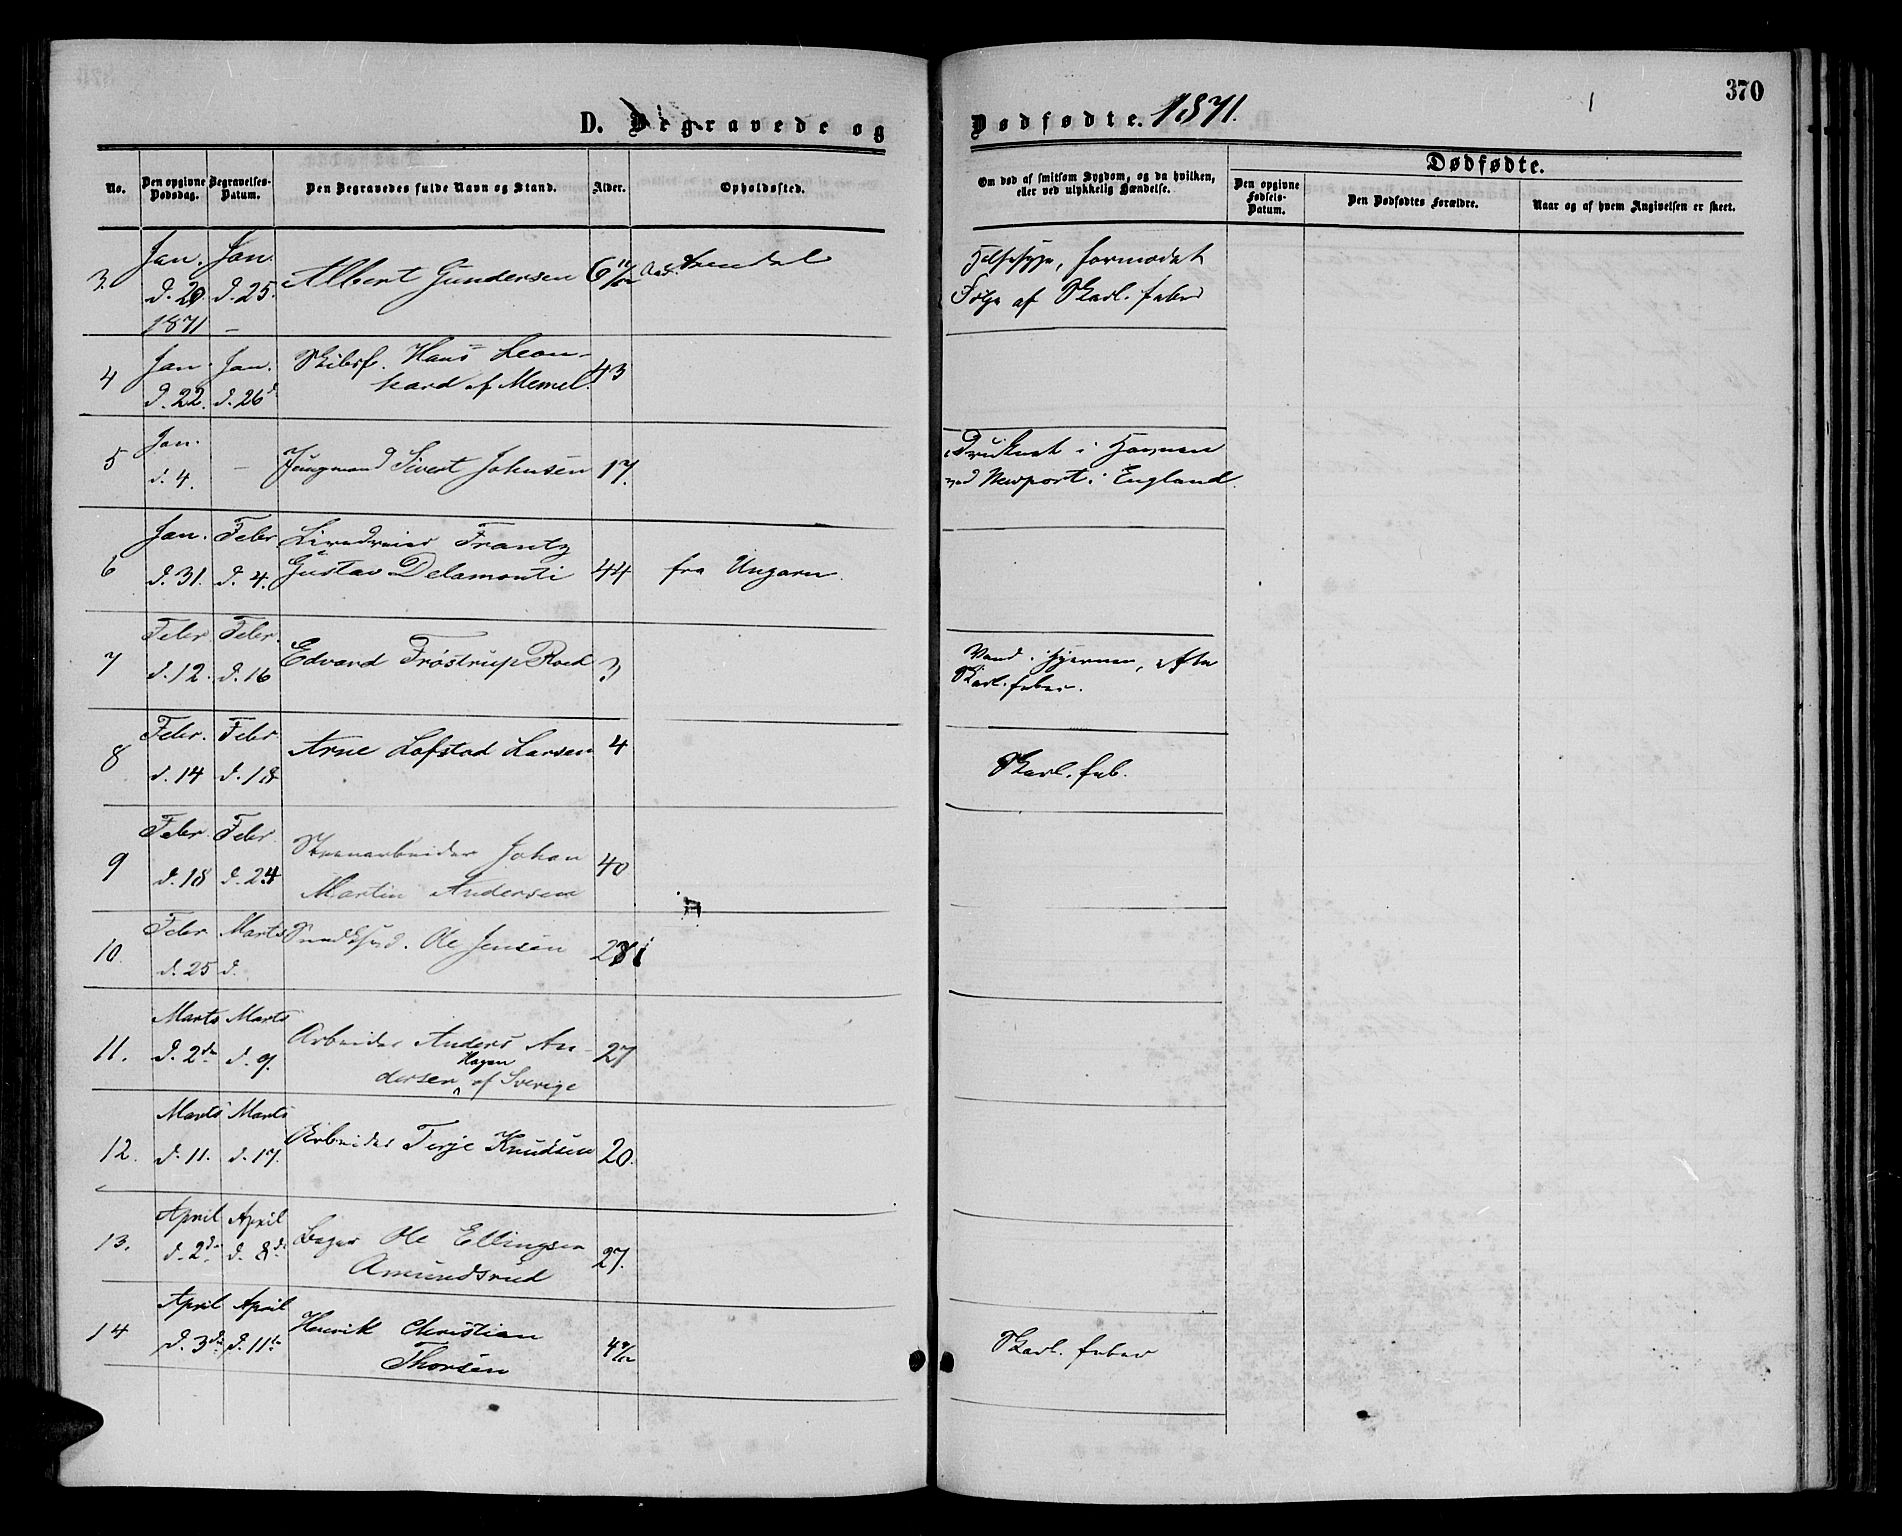 370
D. Begravede og Dødfødte. 1871.
No.
Den opgivne Dødsdag.
Begravelses-Datum.
Den Begravedes fulde Navn og Stand.
Alder.
Opholdssted.
Om død af smitsom Sygdom, og da hvilken, eller ved ulykkelig Hændelse.
Dødfødte.
Den opgivne Fødsels-Datum.
Den Dødfødtes Forældre.
Naar og af hvem Angivelsen er skeet.
3. Jan. Jan.
d. 20. d. 25. Albert Gundersen 6 11/12 Arendal
1871 –
formodet
Følge af Skarl. feber
4 Jan. Jan. Skibsf. Hans Leon-
d. 22. d. 26 hard af Memel. 43
5 Jan.
d. 4. – Jungmand Sivert Johnsen 17.
Druknet i Havnen
ved Newport i England.
6 Jan. Febr. Frantz
d. 31. d. 4. Gustav Delamonti 44 fra Ungarn.
7 Febr. Febr.
d. 12. d. 16 Edvard Frøstrup Roed 3
Vand i Hjernen, efter
Skarl. feber.
8 Febr. Febr
d. 14 d. 18 Arne Løfstad Larsen 4
Skarl. feb.
9 Febr. Febr. Johan
d. 18 d. 24 Martin Andersen 40
10. Febr. Marts Ole Jensen
d. 25 d.
11. Marts Marts Arbeider Anders An-
d. 2den d. 9. dersen Hagen af Sverige 27
12. Marts Marts
d. 11. d. 17. Arbeider Terje Knudsen 20.
13. April April
d. 2den d. 8de Bager Ole Ellingsen 27.
Amundsrud
14 April April Henrik Christian
d. 3die d. 11te Thorsen
Skarl. feber